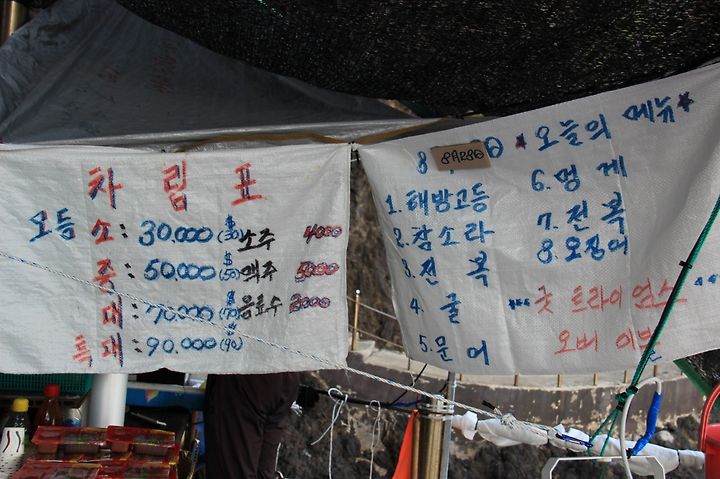 차림표
모듬 소: 30.000 ($30) 소주 4000
중: 50.000 ($50) 맥주 5000
대: 70.000 ($70) 음료수 2000
특대: 90.000 ($90)
8월28일
*오늘의 메뉴*
1. 해방고등
2. 참소라
3. 전복
4. 굴
5. 문어
6. 멍게
7. 전복
8. 오징어
굿 트라이 언소
오버 이븐